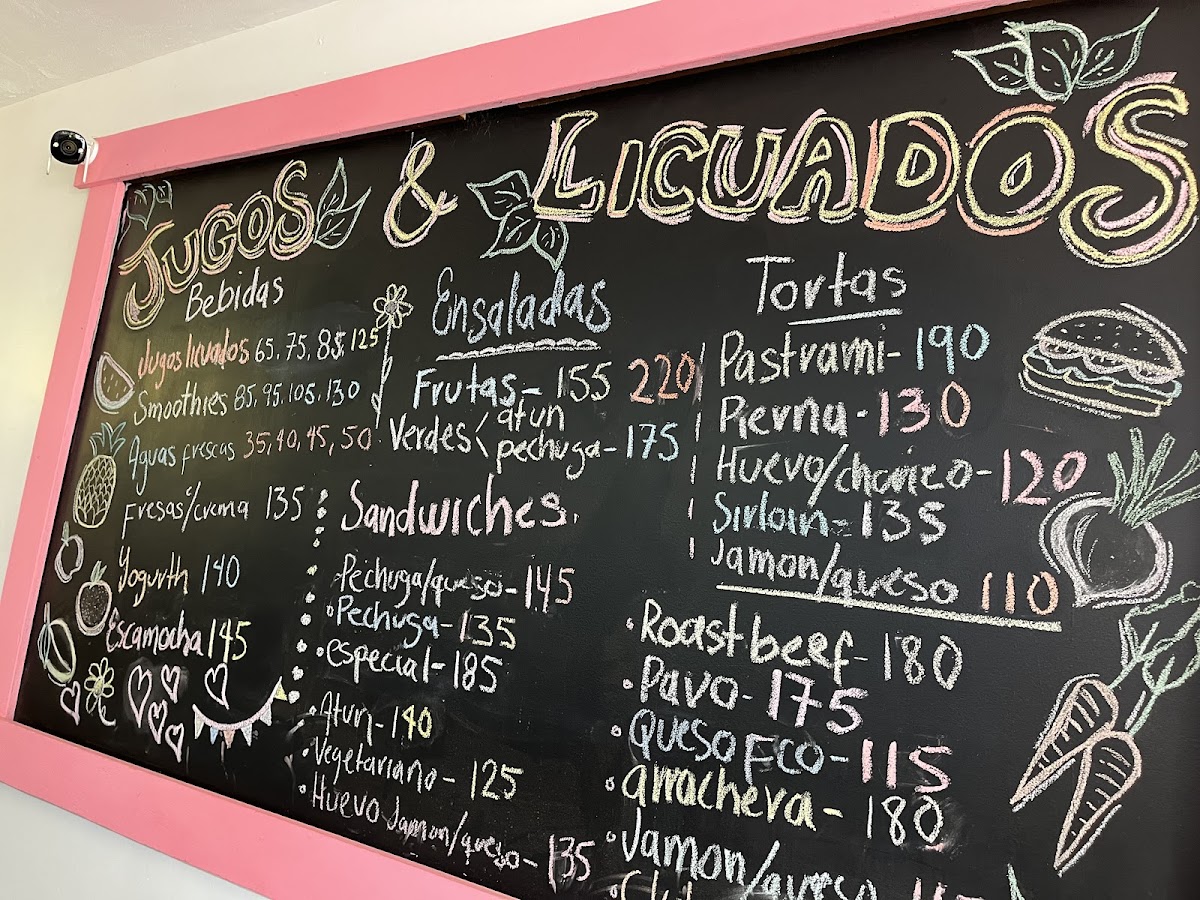 JUGOS & LICUADOS
Bebidas
Jugos licuados 65, 75, 85, 125
Smoothies 85, 95, 105, 130
Aguas frescas 35, 40, 45, 50
Fresas c/crema 135
Yogurth 140
Escamocha 145
Ensaladas
Frutas - 155 220
Verdes < atun
pechuga - 175
Sandwiches.
Pechuga/queso - 145
Pechuga - 135
especial - 185
Atun - 140
Vegetariano - 125
Huevo Jamon/queso - 135
Tortas
Pastrami - 190
Pierna - 130
Huevo/chorizo - 120
Sirloin - 135
Jamon/queso 110
Roast beef - 180
Pavo - 175
Queso Fco - 115
arrachera - 180
Jamon/queso